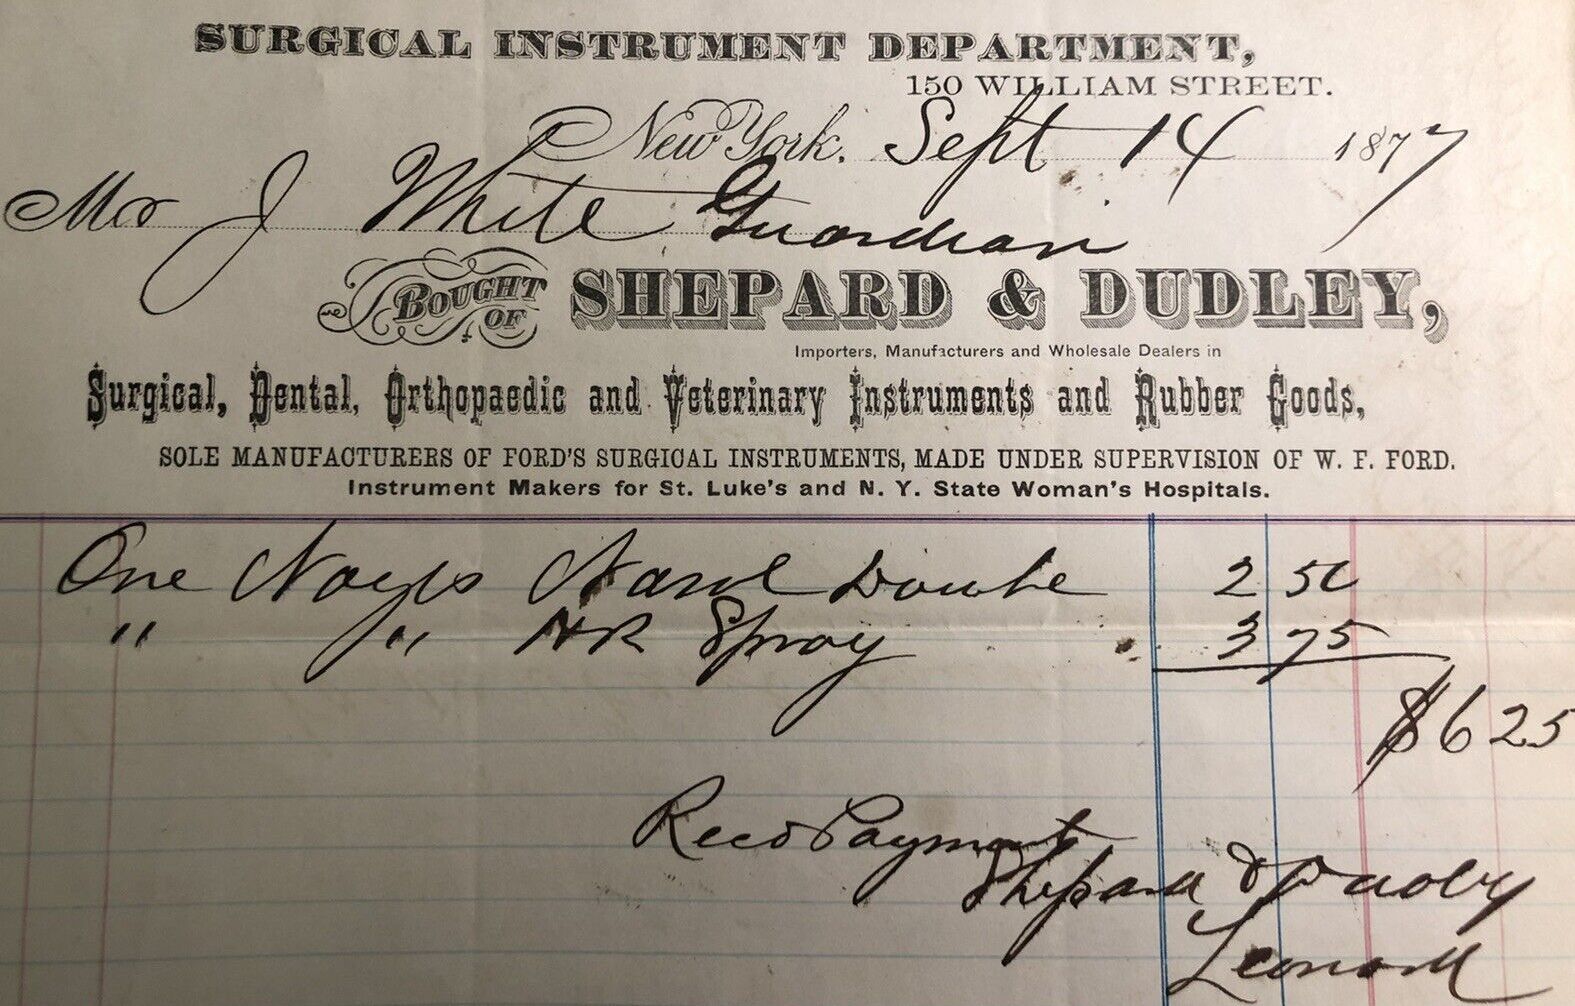 SURGICAL INSTRUMENT DEPARTMENT,
150 WILLIAM STREET.
New York. Sept 14 1877
Mr J White Guardian
BOUGHT OF SHEPARD & DUDLEY,
Importers, Manufacturers and Wholesale Dealers in
Surgical, Dental, Orthopaedic and Veterinary Instruments and Rubber Goods,
SOLE MANUFACTURERS OF FORD'S SURGICAL INSTRUMENTS, MADE UNDER SUPERVISION OF W. F. FORD.
Instrument Makers for St. Luke's and N. Y. State Woman's Hospitals.
One Nasal Douche 2 50
" " Spray 3 75
$6 25
Recd Payment
Shepard & Dudley
Leonard